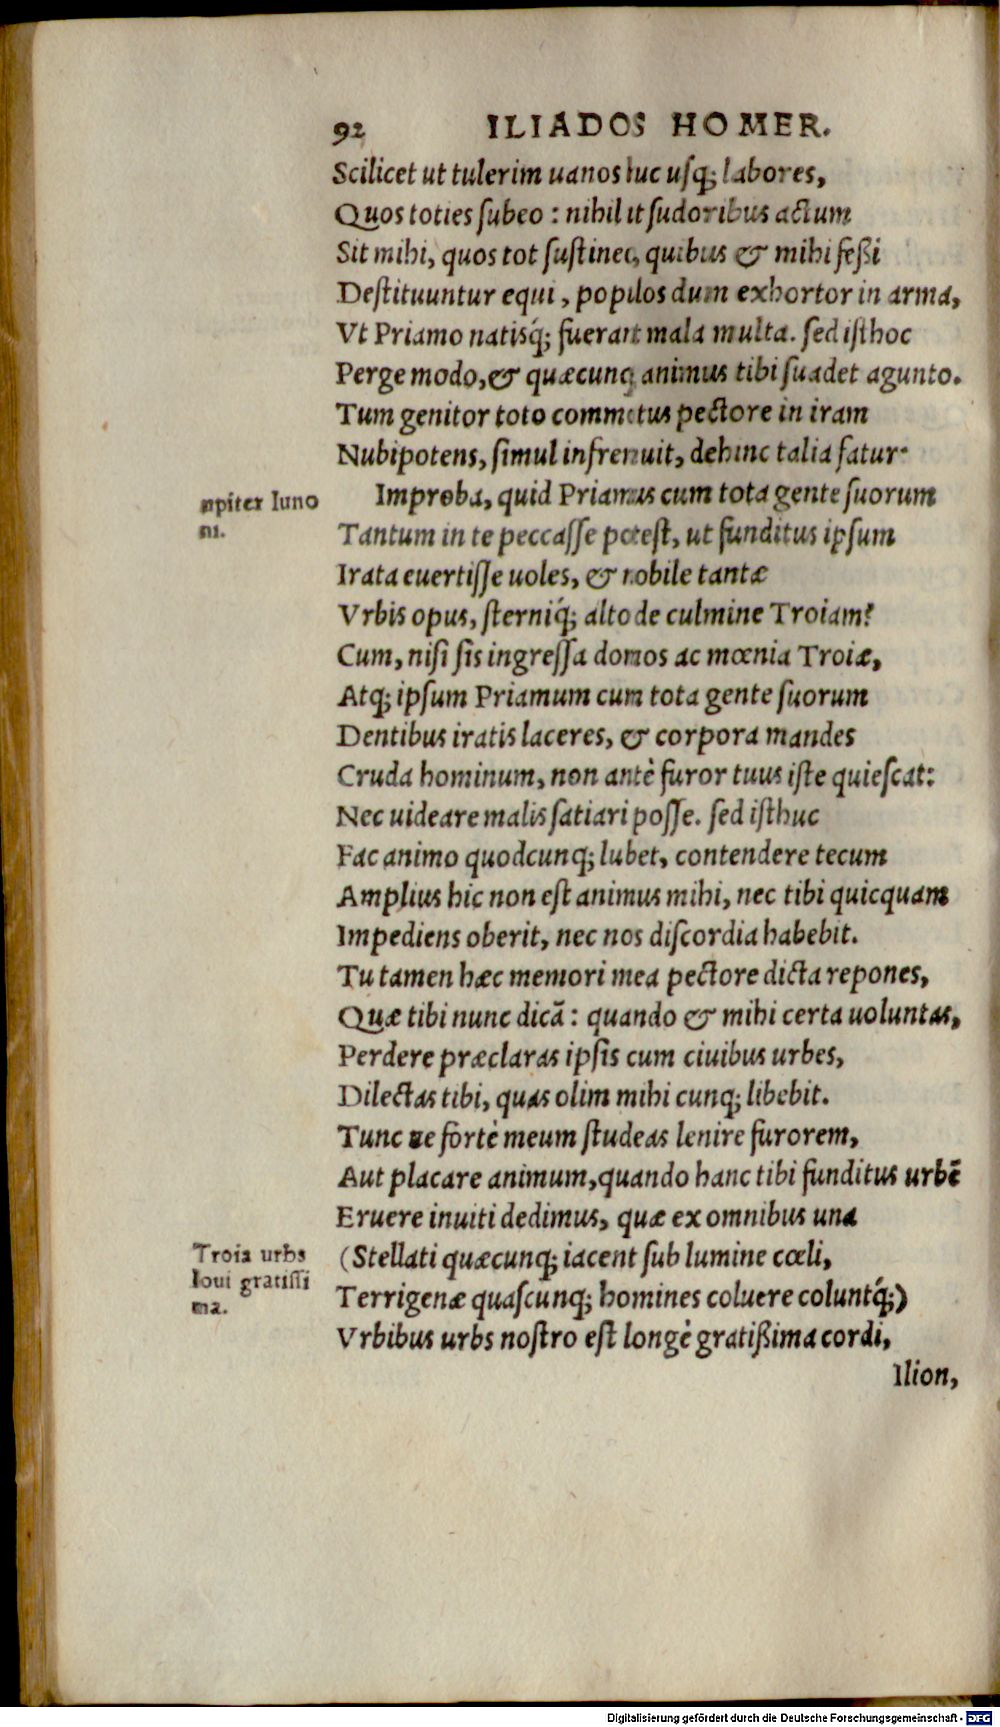 92 ILIADOS HOMER.
Scilicet ut tulerim uanos huc uſq; labores,
Quos toties ſubeo : nihil ut ſudoribus actum
Sit mihi, quos tot ſuſtineo, quibus & mihi feßi
Deſtituuntur equi, populos dum exhortor in arma,
Vt Priamo natisq́; fuerant mala multa. ſed iſthoc
Perge modo, & quæcunq; animus tibi ſuadet agunto.
Tum genitor toto commotus pectore in iram
Nubipotens, ſimul infremuit, dehinc talia fatur.
upiter Iuno
ni.
Improba, quid Priamus cum tota gente ſuorum
Tantum in te peccaſſe poteſt, ut funditus ipſum
Irata euertiſſe uoles, & nobile tantæ
Vrbis opus, ſterniq́; alto de culmine Troiam?
Cum, niſi ſis ingreſſa domos ac mœnia Troiæ,
Atq; ipſum Priamum cum tota gente ſuorum
Dentibus iratis laceres, & corpora mandes
Cruda hominum, non antè furor tuus iſte quieſcat:
Nec uideare malis ſatiari poſſe. ſed iſthuc
Fac animo quodcunq; lubet, contendere tecum
Amplius hic non eſt animus mihi, nec tibi quicquam
Impediens oberit, nec nos diſcordia habebit.
Tu tamen hæc memori mea pectore dicta repones,
Quæ tibi nunc dicā : quando & mihi certa uoluntas,
Perdere præclaras ipſis cum ciuibus urbes,
Dilectas tibi, quas olim mihi cunq; libebit.
Tunc ne fortè meum ſtudeas lenire furorem,
Aut placare animum, quando hanc tibi funditus urbē
Eruere inuiti dedimus, quæ ex omnibus una
Troia urbs
Ioui gratiſſi
ma.
(Stellati quæcunq; iacent ſub lumine cœli,
Terrigenæ quaſcunq; homines coluere coluntq́;)
Vrbibus urbs noſtro eſt longè gratißima cordi,
Ilion,
Digitalisierung gefördert durch die Deutsche Forschungsgemeinschaft - DFG